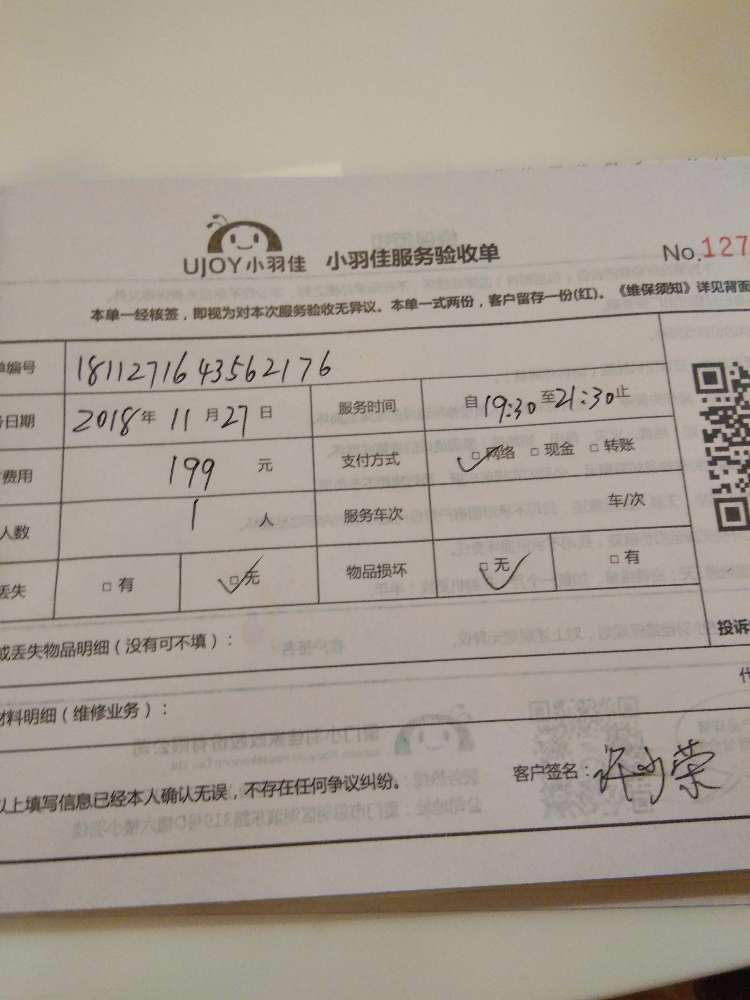 UJOY小羽佳 小羽佳服务验收单 No.127
本单一经核签，即视为对本次服务验收无异议。本单一式两份，客户留存一份(红)。《维保须知》详见背面
单编号 1811271643562176
务日期 2018年 11月27日 服务时间 自19:30至21:30止
费用 199 元 支付方式 网络 现金 转账
人数 1 人 服务车次 车/次
丢失 有 无 物品损坏 无 有
或丢失物品明细（没有可不填）： 投诉
材料明细（维修业务）： 代
以上填写信息已经本人确认无误，不存在任何争议纠纷。 客户签名：许